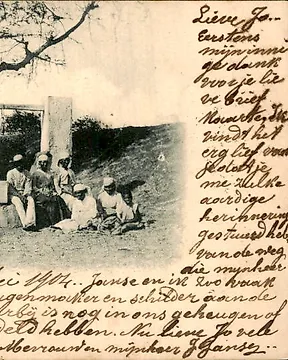 Lieve Jo..
Eerstens
mijn inni
ge dank
voor je lie
ve brief
vindt het
erg lief van
je dat je
me zulke
aardige
herinnering
gestuurd heb
van de weg
die mijnheer
Mei 1904.. Janse en ik zoo vaak
en schilder aan de
is nog in ons geheugen of
hebben. Nu lieve Jo vele
Mevrouw en mijnheer J Jansen..